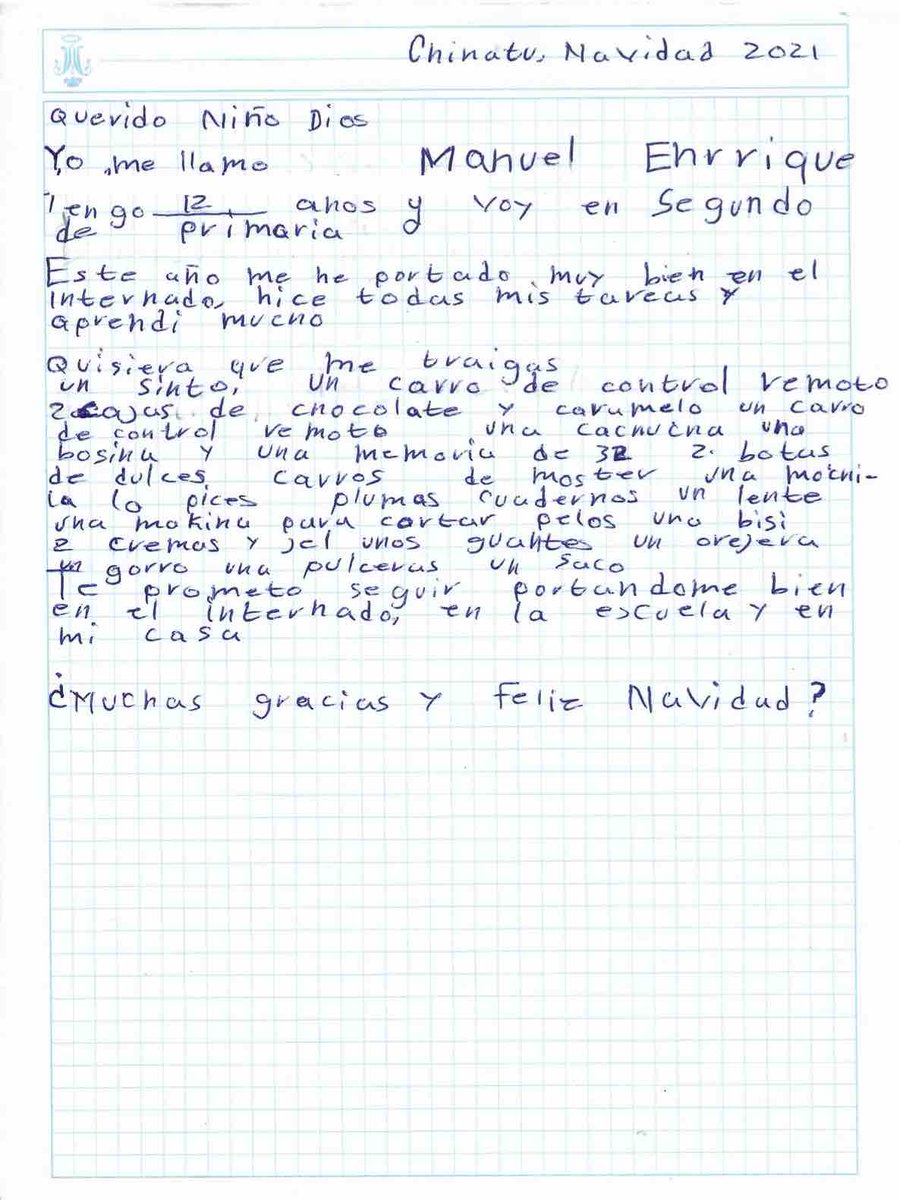 Chinatu, Navidad 2021
Querido Niño Dios
Yo, me llamo Manuel Ehrrique
Tengo 12 años y voy en Segundo
de primaria
Este año me he portado muy bien en el
internado, hice todas mis tareas y
aprendi mucho
Quisiera que me traigas
un sinto, un carro de control remoto
2 cajas de chocolate y caramelo un carro
de control remoto una cachucha una
bosina y una memoria de 32 2 botas
de dulces carros de moster una mochi-
la lo pices plumas cuadernos un lente
una makina para cortar pelos una bisi
2 cremas y jel unos guantes un orejera
un gorro una pulceras un saco
Te prometo seguir portandome bien
en el internado, en la escuela y en
mi casa
¿Muchas gracias y feliz Navidad?